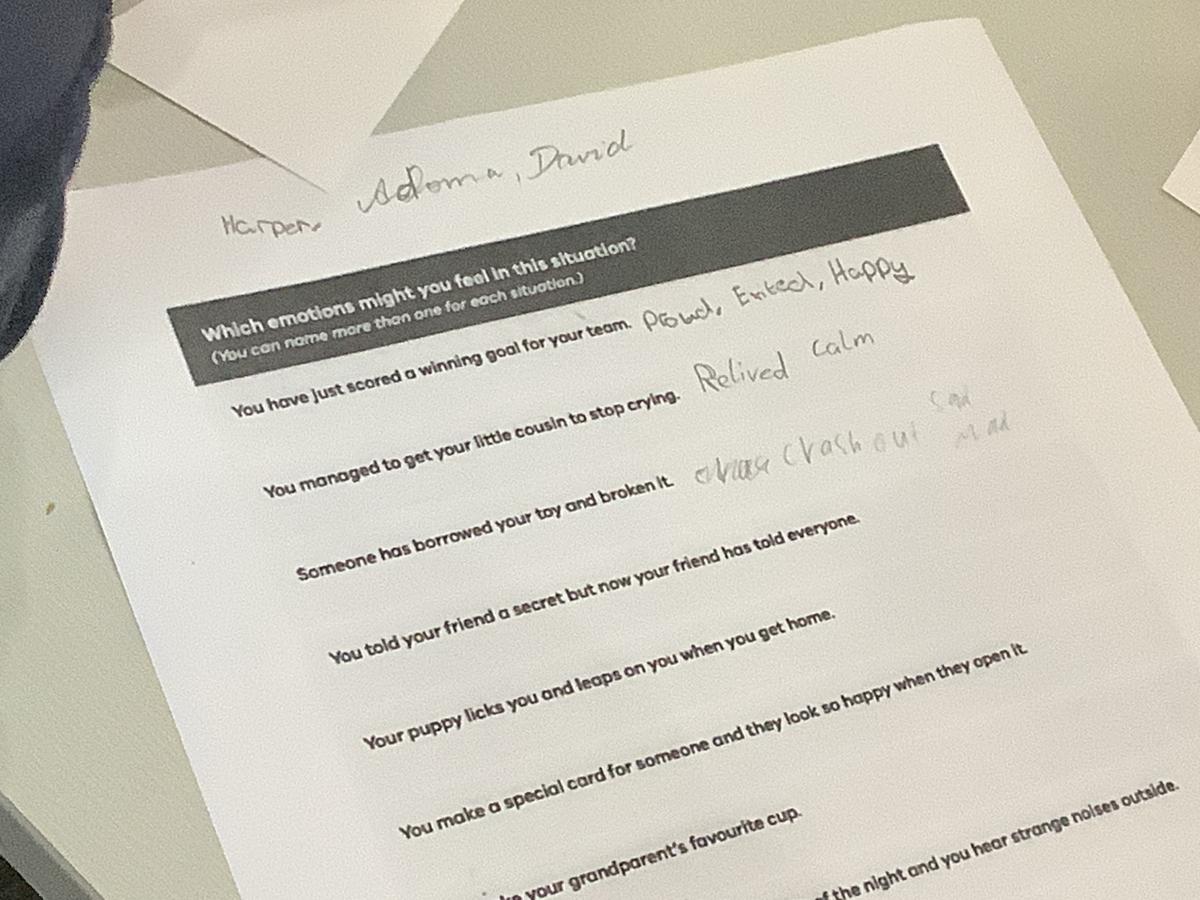 Harper, Adoma, David
Which emotions might you feel in this situation?
(You can name more than one for each situation.)
You have just scored a winning goal for your team. Proud, Exited, Happy
You managed to get your little cousin to stop crying. Relived calm
sad
Someone has borrowed your toy and broken it. crash out mad
You told your friend a secret but now your friend has told everyone.
Your puppy licks you and leaps on you when you get home.
You make a special card for someone and they look so happy when they open it.
your grandparent's favourite cup.
of the night and you hear strange noises outside.